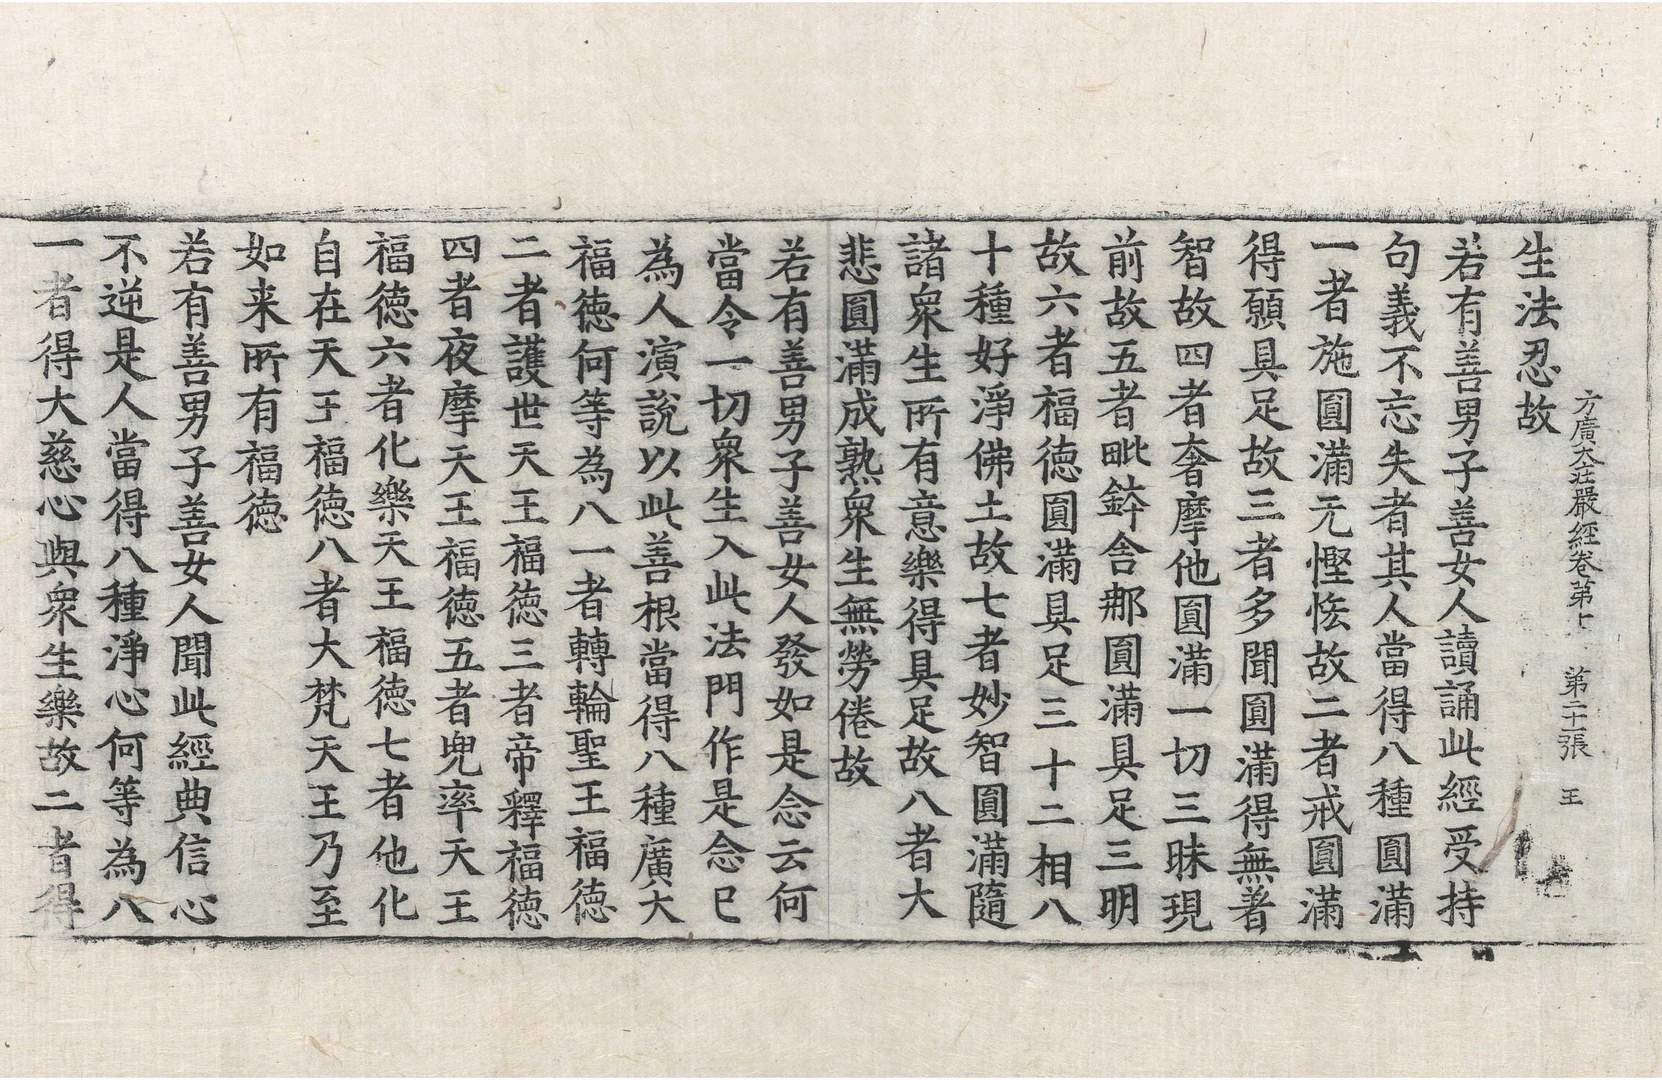 方廣大莊嚴經卷第十　第二十二張　王
生法忍故
若有善男子善女人讀誦此經受持
句義不忘失者其人當得八種圓滿
一者施圓滿无慳悋故二者戒圓滿
得願具足故三者多聞圓滿得無著
智故四者奢摩他圓滿一切三昧現
前故五者毗鉢舍那圓滿具足三明
故六者福德圓滿具足三十二相八
十種好淨佛土故七者妙智圓滿隨
諸衆生所有意樂得具足故八者大
悲圓滿成熟衆生無勞倦故
若有善男子善女人發如是念云何
當令一切衆生入此法門作是念已
為人演說以此善根當得八種廣大
福德何等為八一者轉輪聖王福德
二者護世天王福德三者帝釋福德
四者夜摩天王福德五者兜率天王
福德六者化樂天王福德七者他化
自在天王福德八者大梵天王乃至
如来所有福德
若有善男子善女人聞此經典信心
不逆是人當得八種淨心何等為八
一者得大慈心與衆生樂故二者得